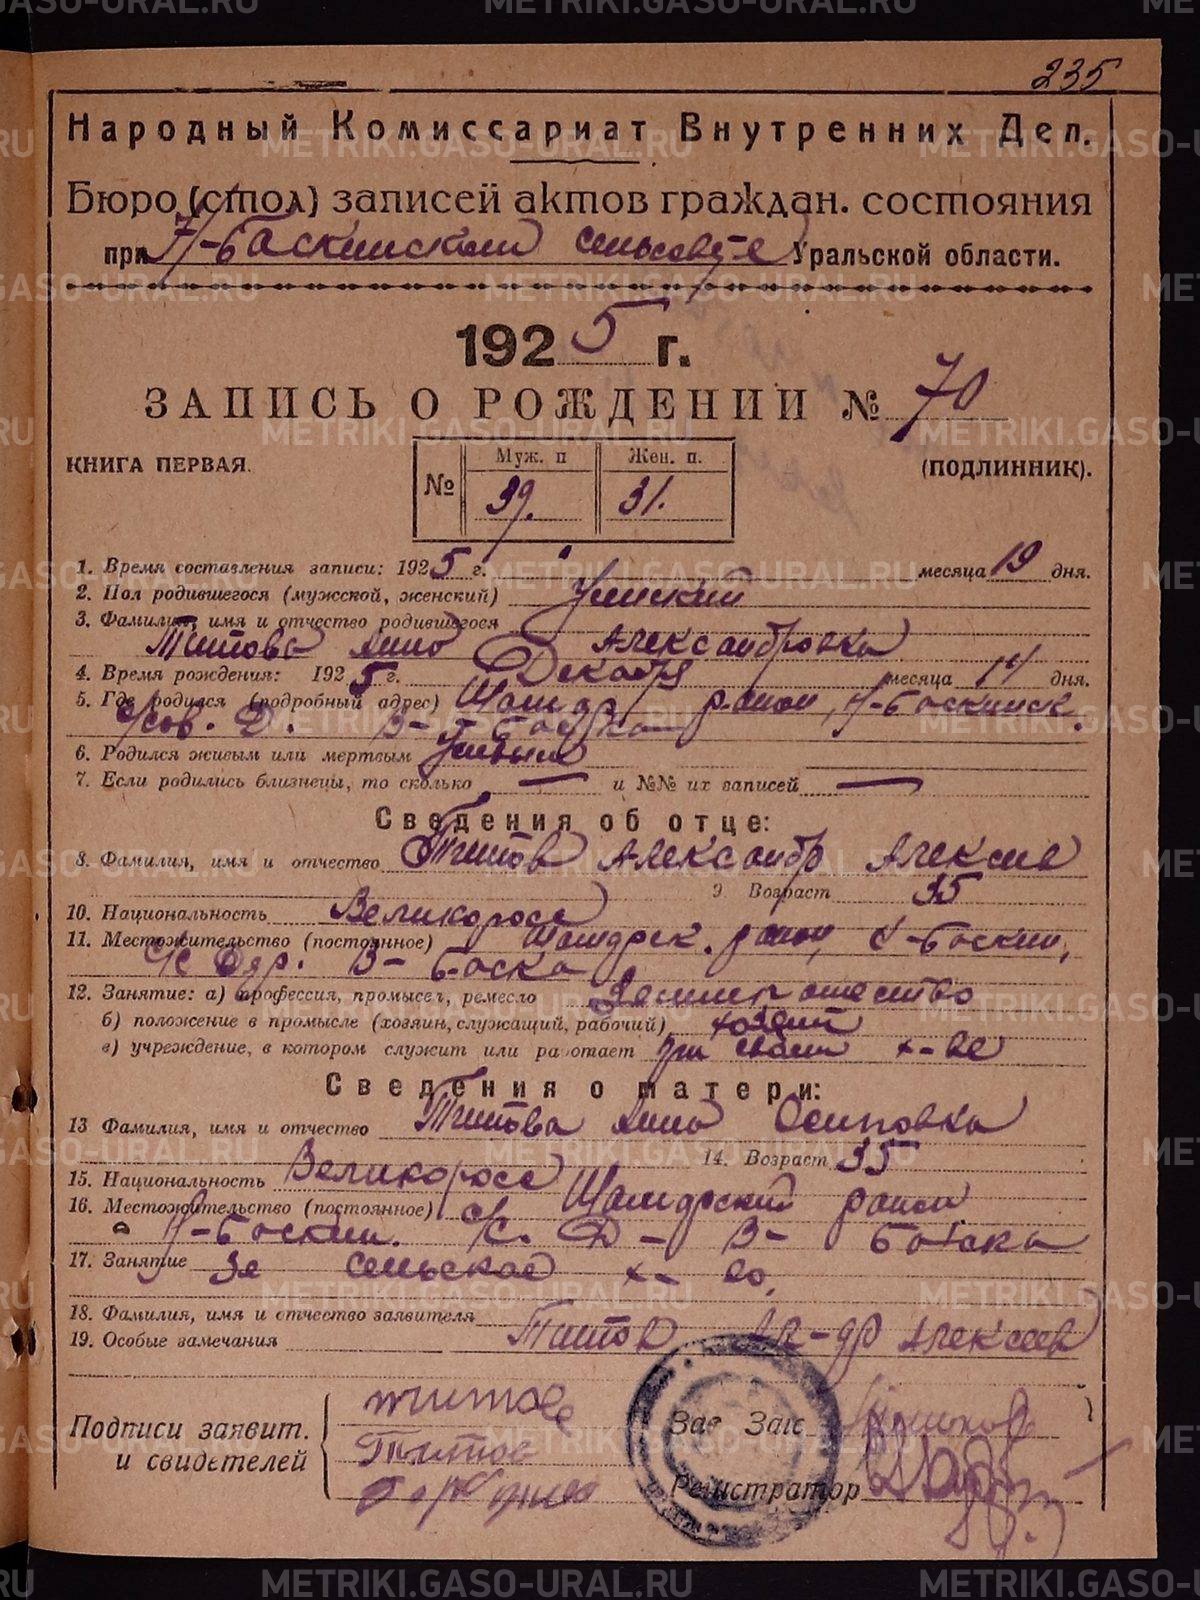 235
Народный Комиссариат Внутренних Дел.
Бюро (стол) записей актов граждан. состояния
при Н-Баскинском сельсовете Уральской области.
1925 г.
ЗАПИСЬ О РОЖДЕНИИ № 70
КНИГА ПЕРВАЯ. (ПОДЛИННИК).
№ Муж. п Жен. п.
39. 31.
1. Время составления записи: 1925 г. месяца 19 дня.
2. Пол родившегося (мужской, женский) Женский
3. Фамилия, имя и отчество родившегося
Титова Анна Александровна
4. Время рождения: 1925 г. Декабря месяца 14 дня.
5. Где родился (подробный адрес) Шамар район, Н-Баскинск.
с/сов. Д. В-Баска
6. Родился живым или мертвым Живым
7. Если родились близнецы, то сколько — и №№ их записей —
Сведения об отце:
8. Фамилия, имя и отчество Титов Александр Алексеев
9 Возраст 35
10. Национальность Великоросс
11. Местожительство (постоянное) район, Н-Баскин,
с/с дер. В-Баска
12. Занятие: а) профессия, промысел, ремесло
б) положение в промысле (хозяин, служащий, рабочий) хозяин
в) учреждение, в котором служит или работает при своем х-ве
Сведения о матери:
13 Фамилия, имя и отчество Титова Анна Осиповна
14. Возраст 35
15. Национальность Великоросс
16. Местожительство (постоянное) район
Н-Баскин. с/с. Д- В- Баска
17. Занятие сельское х-во
18. Фамилия, имя и отчество заявителя
19. Особые замечания Титов Ал-др Алексеев
Подписи заявит.
и свидетелей
Титов
Титов
Зав Загс
Регистратор
METRIKI.GASO-URAL.RU